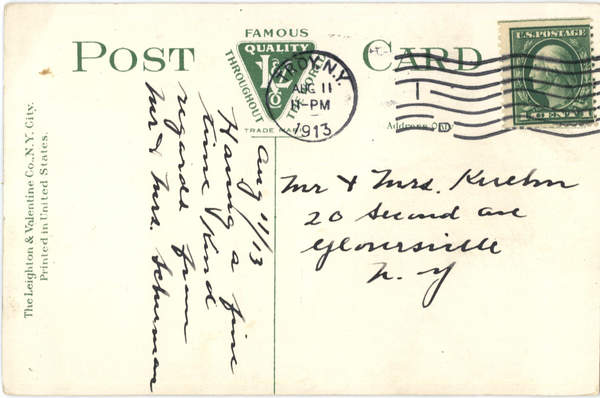 POST CARD
FAMOUS
QUALITY
THROUGHOUT THE WORLD
L&V Co
TRADE MARK
TROY, N.Y.
AUG 11
11-PM
1913
1
U.S. POSTAGE
1 CENT 1
Address Only
The Leighton & Valentine Co., N.Y. City.
Printed in United States.
Aug 11/13
Having a fine
time & Kind
regards from
Mr & Mrs. Schurman
Mr & Mrs. Kuehn
20 Second ave
Gloversville
N. Y